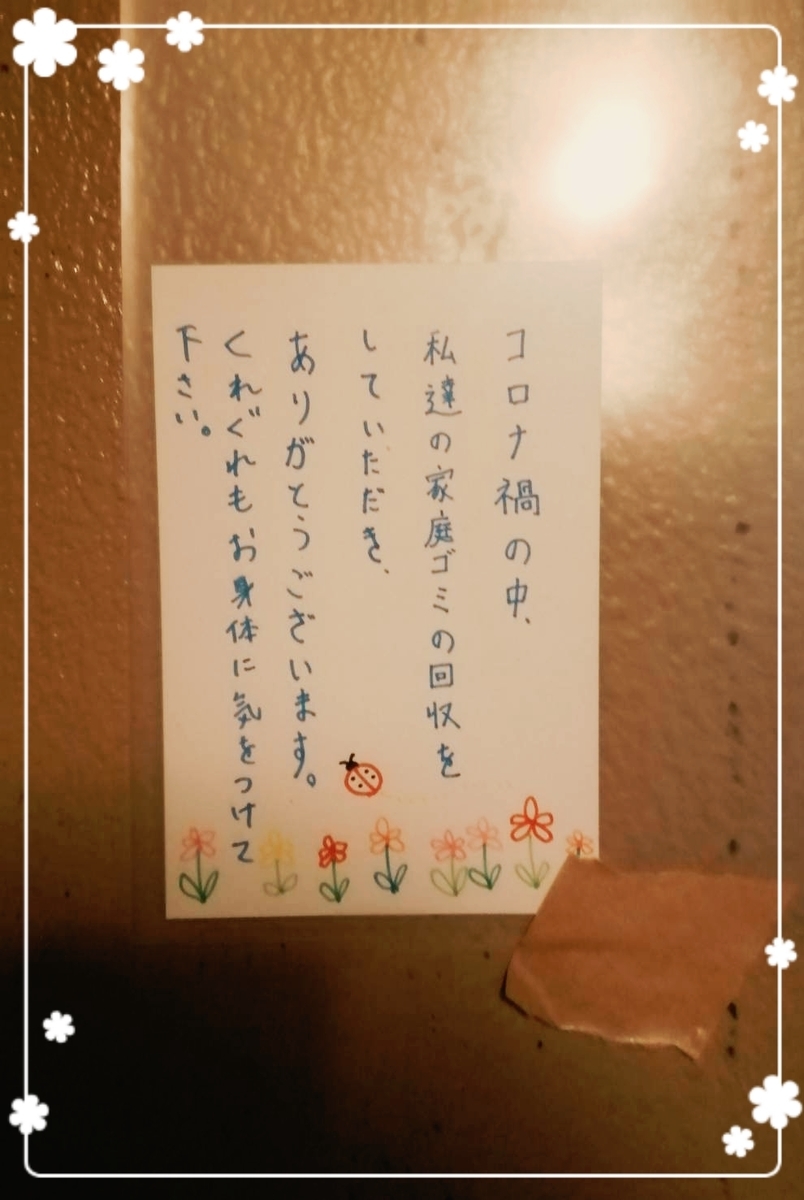 コロナ禍の中、
私達の家庭ゴミの回収を
していただき、
ありがとうございます。
くれぐれもお身体に気をつけて
下さい。